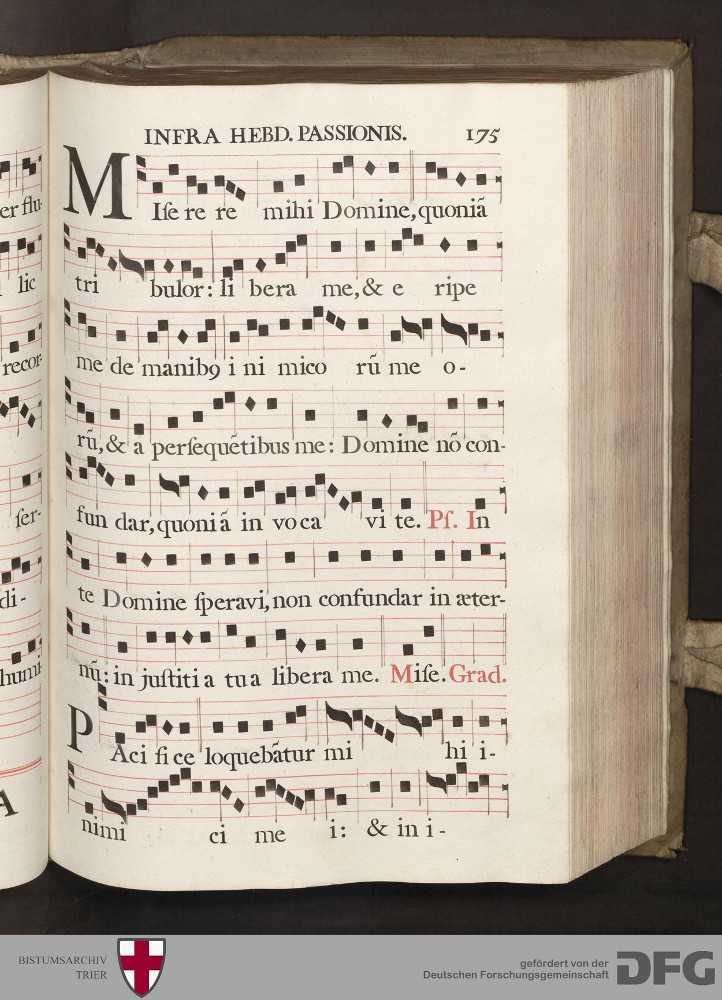 INFRA HEBD. PASSIONIS. 175
MIſe re re mihi Domine, quoniã
tri bulor: li bera me, & e ripe
me de manibꝯ i ni mico rũ me o-
rũ, & a perſequẽtibus me: Domine nõ con-
fun dar, quoni ã in vo ca vi te. Pſ. In
te Domine ſperavi, non confundar in æter-
nũ: in juſtiti a tu a libera me. Miſe. Grad.
PAci fi ce loquebãtur mi hi i-
nimi ci me i: & in i-
er flu-
lic
recor-
ſer-
di-
humi-
A
BISTUMSARCHIV
TRIER
gefördert von der
Deutschen Forschungsgemeinschaft
DFG